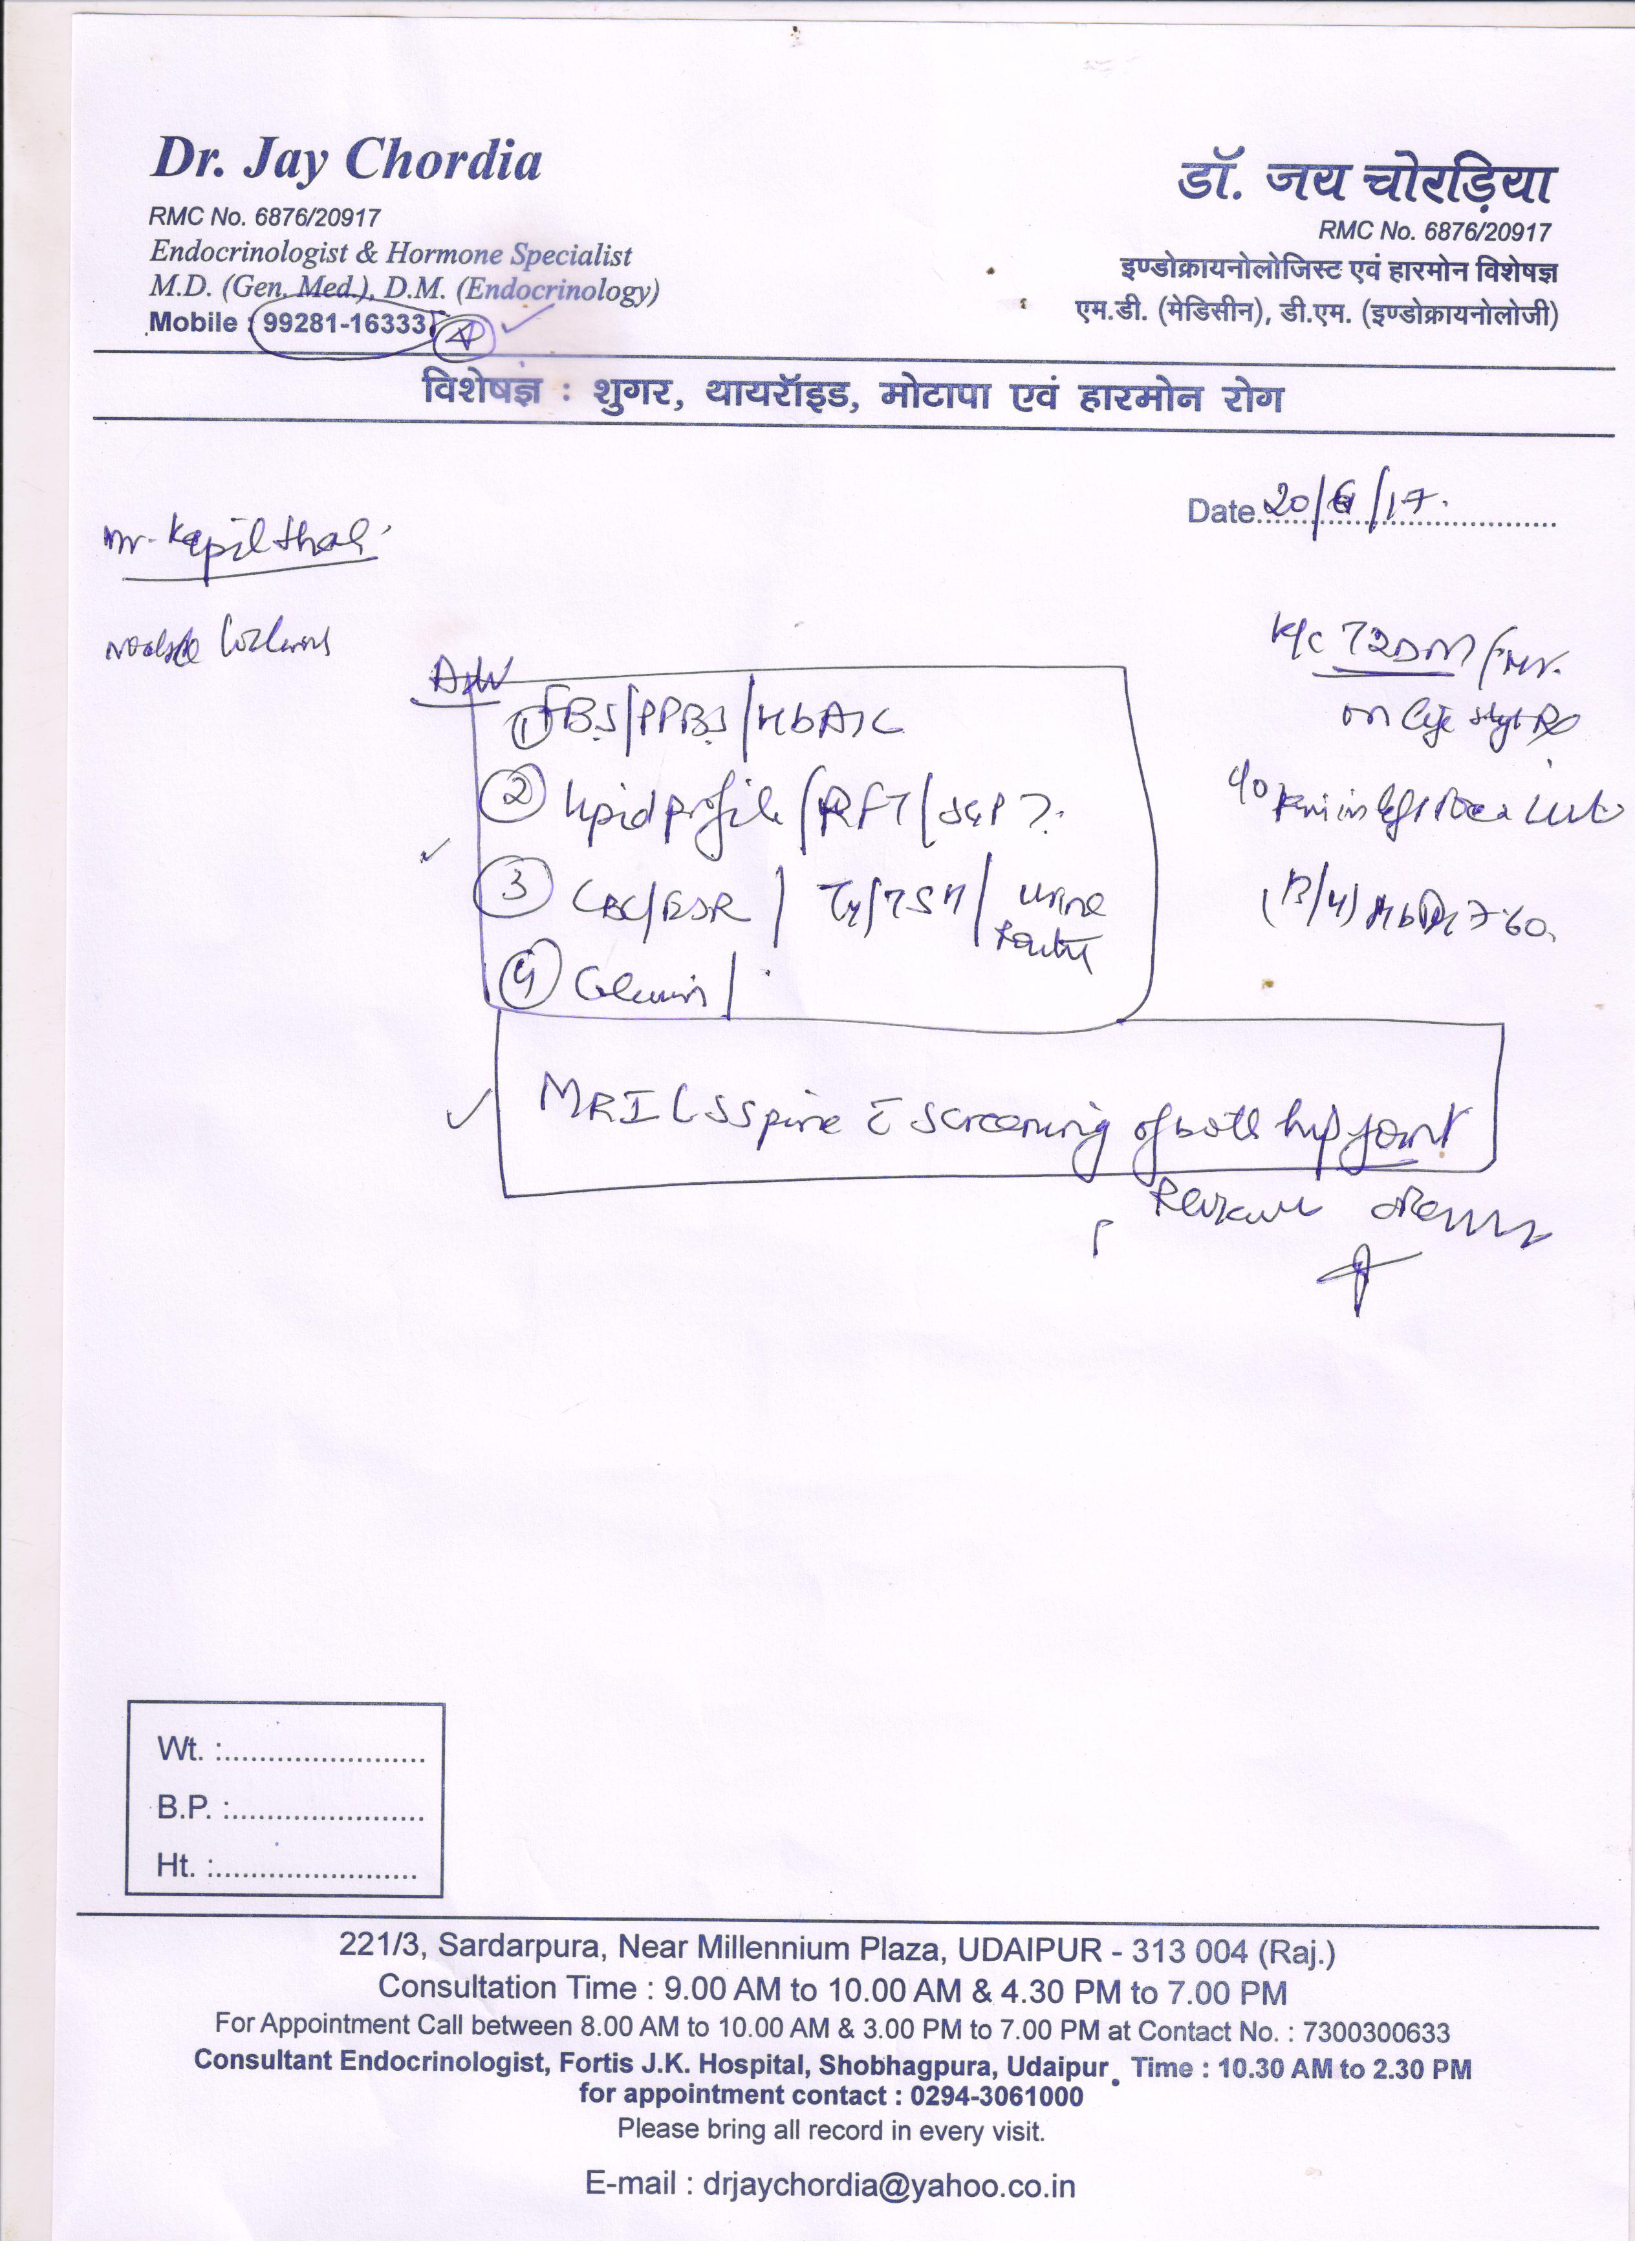 Dr. Jay Chordia
RMC No. 6876/20917
Endocrinologist & Hormone Specialist
M.D. (Gen. Med.), D.M. (Endocrinology)
Mobile : 99281-16333
डॉ. जय चोरड़िया
RMC No. 6876/20917
इण्डोक्रायनोलोजिस्ट एवं हारमोन विशेषज्ञ
एम.डी. (मेडिसीन), डी.एम. (इण्डोक्रायनोलोजी)
विशेषज्ञ : शुगर, थायरॉइड, मोटापा एवं हारमोन रोग
Date 20/6/17.
Mr. Kapil
K/c T2DM
on life style Rx
c/o Pain in left
(13/4) HbA1c 7.60
Adv
① FBS/PPBS/HbA1C
② Lipid profile/RFT/SGPT
③ CBC/ESR / T4/TSH/ Urine
Routine
④ Calcium/
MRI LS Spine c̄ screening of both hip joint
Review
Wt. :
B.P. :
Ht. :
221/3, Sardarpura, Near Millennium Plaza, UDAIPUR - 313 004 (Raj.)
Consultation Time : 9.00 AM to 10.00 AM & 4.30 PM to 7.00 PM
For Appointment Call between 8.00 AM to 10.00 AM & 3.00 PM to 7.00 PM at Contact No. : 7300300633
Consultant Endocrinologist, Fortis J.K. Hospital, Shobhagpura, Udaipur. Time : 10.30 AM to 2.30 PM
for appointment contact : 0294-3061000
Please bring all record in every visit.
E-mail : drjaychordia@yahoo.co.in